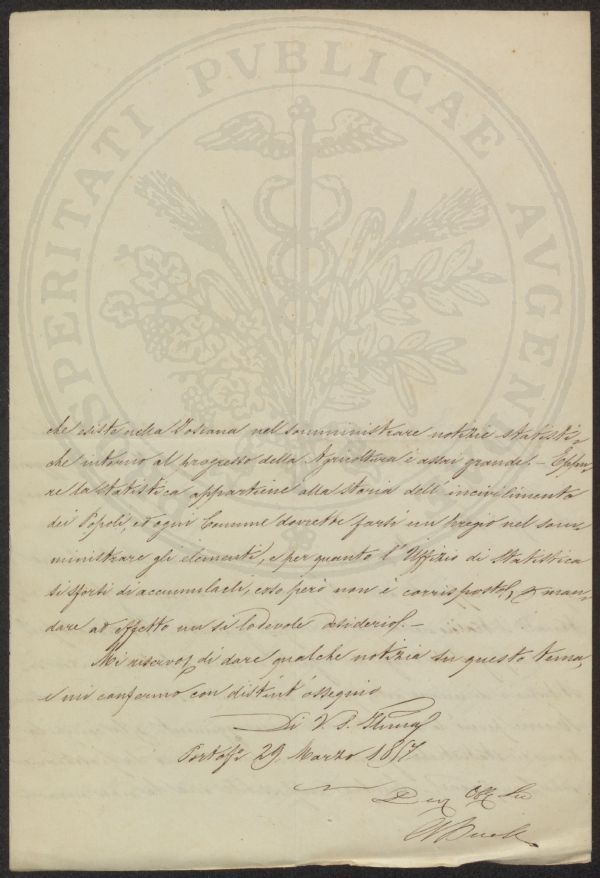 PROSPERITATI PVBLICAE AVGENDAE
che esiste nella Toscana nel somministrare notizie statisti-
che intorno al progresso della Agricoltura è assai grande. - Eppu-
re la statistica appartiene alla storia dell'incivilimento
dei Popoli, ed ogni Comune dovrebbe farsi un pregio nel som-
ministrare gli elementi, e per quanto l'Uffizio di statistica
si sforzi di accumularli, esso però non è corrisposto, a man-
dare ad effetto un sì lodevole desiderio. -
Mi riservo di dare qualche notizia su questo tema,
e mi confermo con distint'ossequio
Di V. S. Illma
29 Marzo 1857
Dev Obb